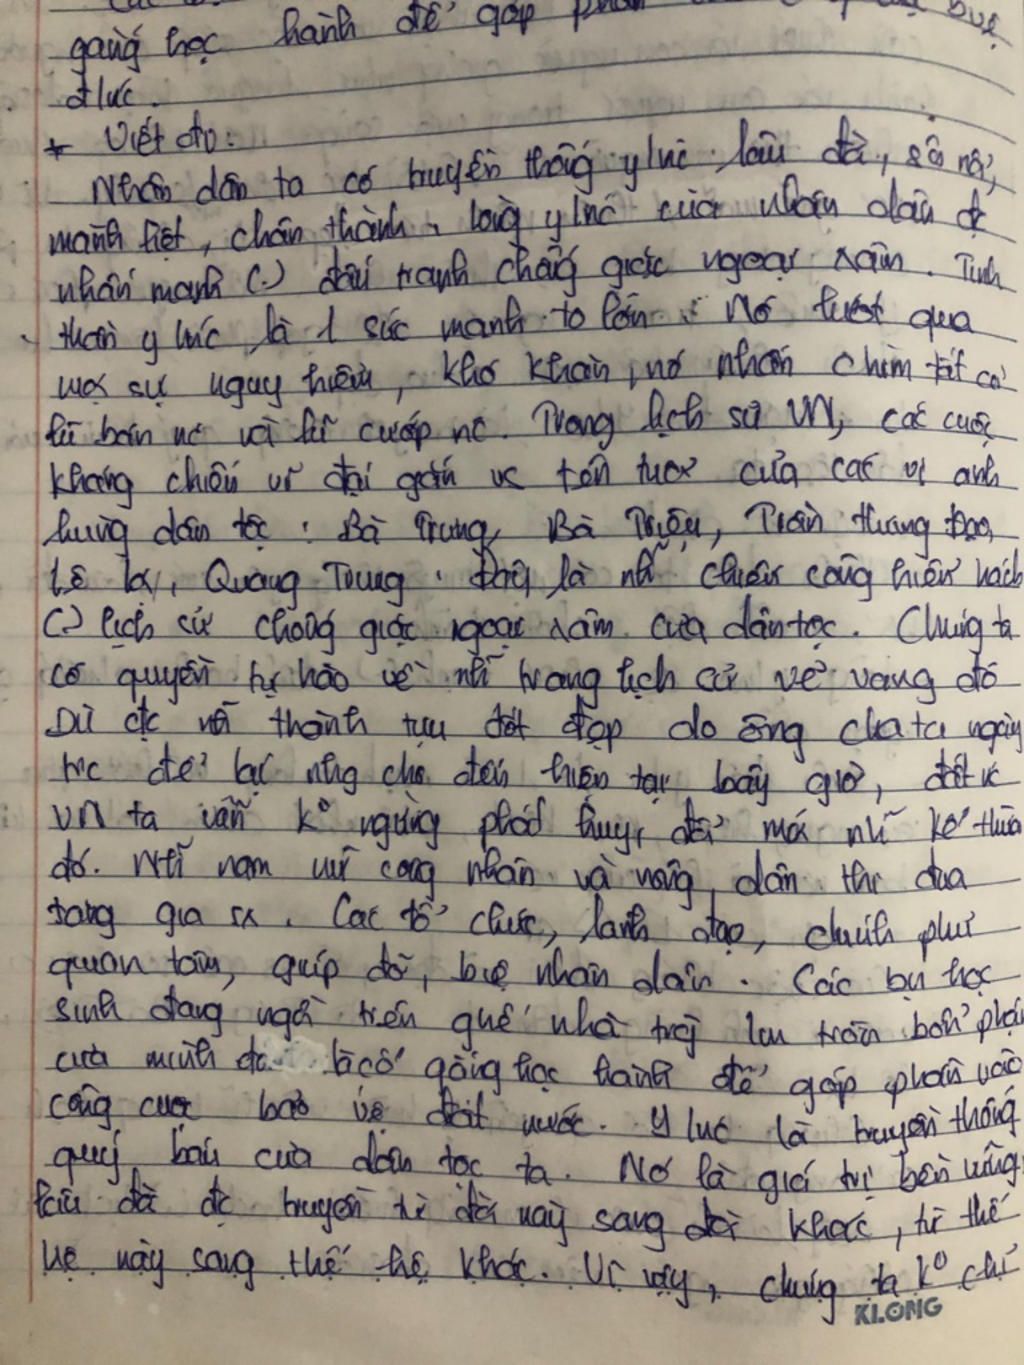 gắng học hành để góp phần
đ/nc.
* Viết đv:
Nhân dân ta có truyền thống y/nc lâu đời, sôi nổi,
mãnh liệt, chân thành, lòng y/nc của nhân dân đc
nhấn mạnh (.) đấu tranh chống giặc ngoại xâm. Tinh
thần y nc là 1 sức mạnh to lớn. Nó lướt qua
mọi sự nguy hiểm, khó khăn, nó nhấn chìm tất cả
lũ bán nc và lũ cướp nc. Trong lịch sử VN, các cuộc
kháng chiến vĩ đại gắn vs tên tuổi của các vị anh
hùng dân tộc: Bà Trưng, Bà Triệu, Trần Hưng Đạo,
Lê Lợi, Quang Trung. Đây là nh~ chiến công hiển hách
(.) lịch sử chống giặc ngoại xâm của dân tộc. Chúng ta
có quyền tự hào về nh~ trang lịch sử vẻ vang đó
Dù đc nh~ thành tựu tốt đẹp do ông cha ta ngày
trc để lại nhg cho đến hiện tại bây giờ, đất nc
VN ta vẫn k° ngừng phát huy, đổi mới nh~ kế thừa
đó. Nh~ nam nữ công nhân và nông dân thi đua
tăng gia sx. Các tổ chức, lãnh đạo, chính phủ
quan tâm, giúp đỡ, bvệ nhân dân. Các bạn học
sinh đang ngồi trên ghế nhà trg lun tròn bổn phận
của mình đó là cố gắng học hành để góp phần vào
công cuộc bảo vệ đất nước. Y/nc là truyền thống
quý báu của dân tộc ta. Nó là giá trị bền vững,
lâu đời đc truyền từ đời này sang đời khác, từ thế
hệ này sang thế hệ khác. Vì vậy, chúng ta k° chỉ
KLONG